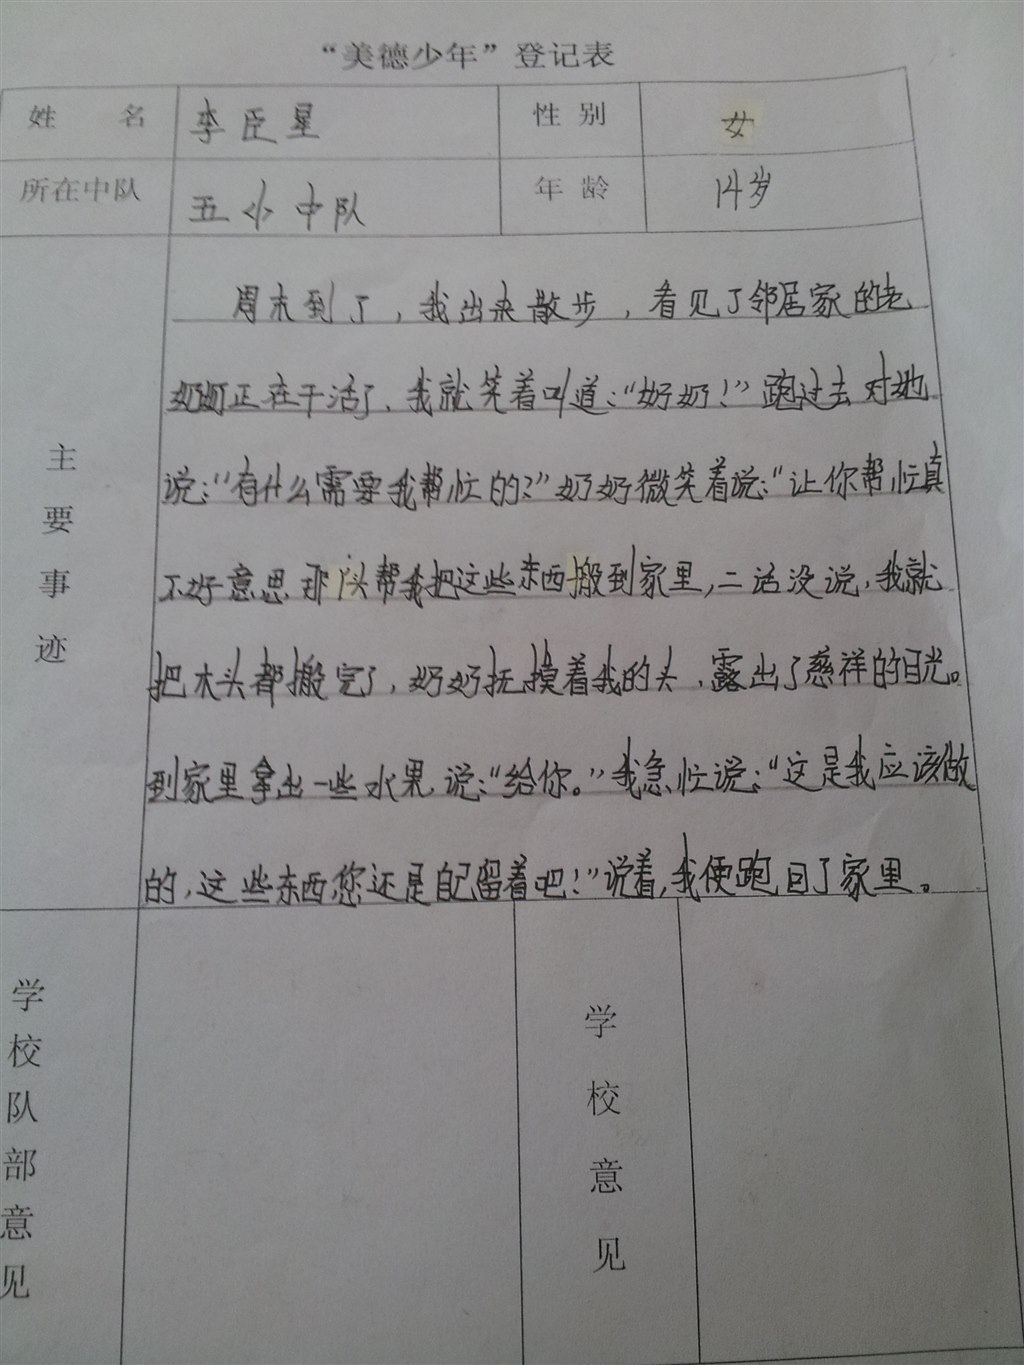 “美德少年”登记表
姓 名 李臣星 性 别 女
所在中队 五小中队 年 龄 14岁
主要事迹
周末到了，我出来散步，看见了邻居家的老
奶奶正在干活了，我就笑着叫道：“奶奶！”跑过去对她
说：“有什么需要我帮忙的？”奶奶微笑着说：“让你帮忙真
不好意思那你帮我把这些东西搬到家里，二话没说，我就
把木头都搬完了，奶奶抚摸着我的头，露出了慈祥的目光。
到家里拿出一些水果，说：“给你。”我急忙说：“这是我应该做
的，这些东西您还是自己留着吧！”说着，我便跑回了家里。
学校队部意见
学校意见